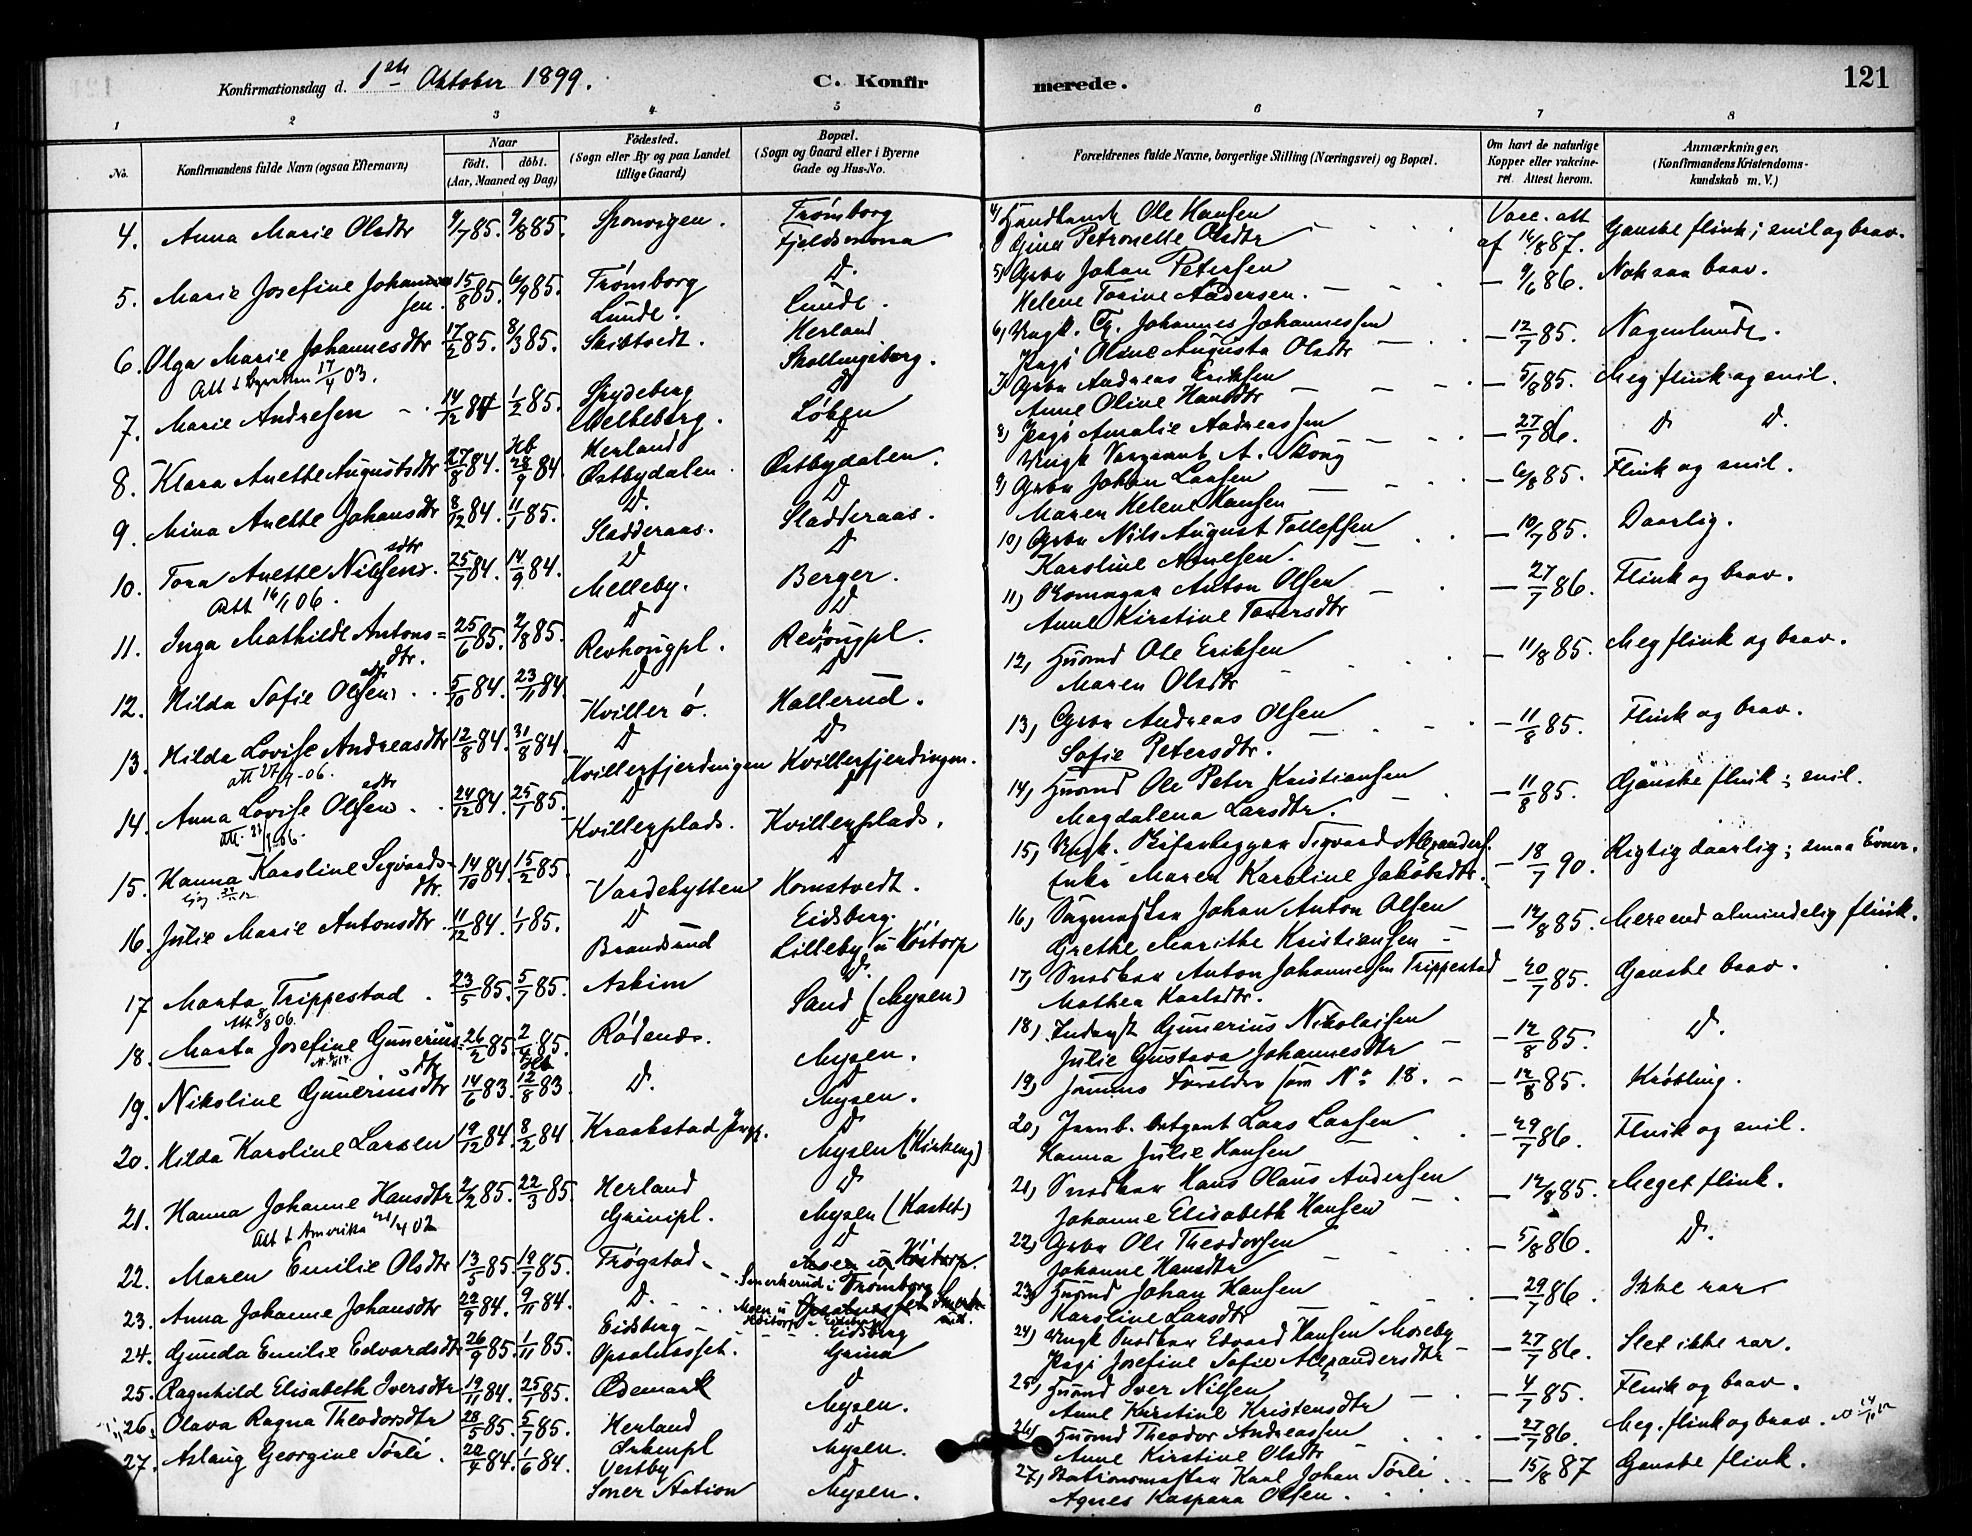 Konfirmationsdag d. 1ste Oktober 1899.
C. Konfir
merede.
121
1 2 3 4 5 6 7 8
No.
Konfirmandens fulde Navn (ogsaa Efternavn)
Naar
födt. döbt.
(Aar, Maaned og Dag)
Födested.
(Sogn eller By og paa Landet
tillige Gaard)
Bopæl.
(Sogn og Gaard eller i Byerne
Gade og Hus-No.
Forældrenes fulde Navne, borgerlige Stilling (Næringsvei) og Bopæl.
Om havt de naturlige
Kopper eller vakcine-
ret. Attest herom.
Anmærkninger.
(Konfirmandens Kristendoms-
kundskab m. V.)
4. Anna Marie Olsdtr 9/7 85. 9/8 85. Sponvigen. Trømborg
Fjeldsmona
4) Ole Hansen
Gina Petronelle Olsdtr
Vacc. att
af 16/8 87. Ganske flink; snil og brav.
5. Marie Josefine Johannes
sen. 15/8 85. 6/9 85. Trømborg
Lunde. D.
Lunde.
5) Grbr Johan Petersen
Helene Torine Andersen.
— 9/6 86. Nok saa brav.
6. Olga Marie Johannesdtr 17/2 85. 8/3 85. Skibtvedt. Herland
Skollingsborg.
17/4 03.
6) Ungk. Tj. Johannes Johannessen
Pagi Oline Augusta Olsdtr
— 12/7 85. Nogenlunde.
7. Marie Andresen 14/12 84 1/2 85. Spydeberg
Melbeberg. D
Løken
7) Grbr Andreas Eriksen
Anne Oline Hansdtr
— 5/8 85. Meg flink og snil.
8. Klara Anette Augustsdtr 27/8 84. Hb 28/9 84. Herland
Østbydalen. D
Østbydalen.
8) Pagi Amalie Andreassen
Ungk A. Skoug
— 27/7 86. D D.
9. Mina Anette Johansdtr 8/12 84. 11/1 85. D.
Sladderaas. D
Sladderaas.
9) Grbr Johan Larsen
Maren Helene Hansen
— 6/8 85. Flink og snil.
10. Tora Anette Nilsens. sdtr 25/7 84. 14/9 84. D
Melleby. D
Berger.
Att 16/1 06.
10) Grbr Nils August Tollefsen
Karoline
— 10/7 85. Daarlig.
11. Inga Mathilde Antons=
dtr. 25/6 85. 2/8 85. D
Revhougpl. D
Revhougpl.
11) Anton Olsen
Anne Kirstine Toversdtr
— 27/7 86. Flink og brav.
12. Hilda Sofie Olsen 5/10 84. 23/11 84. D
Kviller ø. D
Hallerud.
12) Husmd Ole Eriksen
Maren Olsdtr
— 11/8 85. Meg flink og brav.
13. Hilda Lovise Andreasdtr 12/8 84. 31/8 84. D
Kvillerfjerdingen D
Kvillerfjerdingen.
13) Grbr Andreas Olsen
Sofie Petersdtr.
— 11/8 85. Flink og brav.
14. Anna Lovise Olsen 24/12 84. 25/1 85. D
Kvillerplads. D
Kvillerplads.
14) Husmd Ole Peter Kristiansen
Magdalena Larsdtr.
— 11/8 85. Ganske flink; snil.
15. Hanna Karoline Sigvards-
dtr. 14/10 84. 15/2 85. D
Vardehytten D
Homstvedt.
15) Ungk. Sigvard Alexanders.
Enke Maren Karoline Jakobsdtr.
— 18/7 90. Rigtig daarlig; smaa Evner.
16. Julie Marie Antonsdtr 11/12 84. 1/1 85. D
Brandsrud Eidsberg.
Lilleby u Høitorp
16) Sagmester Johan Anton Olsen
Grethe Marithe Kristiansen
— 12/8 85. Mere end almindelig flink.
17 Marta Trippestad 23/5 85. 5/7 85. Askim D.
Sand (Mysen)
Att 8/8 06.
17) Snedker Anton Johannessen Trippestad
Mathea Karlsdtr.
— 20/7 85. Ganske brav.
18. Marta Josefine Gunerius
dtr 26/2 85. 2/4 85. Rødenæs. D
Mysen.
18) Gunerius Nikolaisen
Julie Gustava Johannesdtr
— 12/8 85. D.
19. Nikoline Guneriusdtr 14/6 83. 12/8 83. D. D
Mysen.
19) samme Forældre som No 18.
— 12/8 85. Krøbling.
20. Hilda Karoline Larsen 19/12 84. 8/2 84. Kraakstad D
Mysen (Kirkeng)
20) Jernb. betjent Lars Larsen
Hanna Julie Hansen
— 29/7 86. Flink og snil.
21. Hanna Johanne Hansdtr 2/2 85. 22/3 85. Herland
Grinipl. D.
Mysen (Kastet)
Att t Amerika 21/4 02
21) Snedker Hans Olaus Andersen
Johanne Elisabeth Hansen
— 12/8 85. Meget flink.
22. Maren Emilie Olsdtr 13/5 85. 19/7 85. Trøgstad D
Moen u/ Høitorp.
22) Grbr Ole Theodorsen
Johanne Hansdtr
— 5/8 86. D.
23. Anna Johanne Johansdtr 22/9 84. 9/11 84. D. Smerkerud i Trømborg
23) Husmd Johan Hansen
Karoline Larsdtr
— 29/7 86. Ikke rar
24. Gunda Emilie Edvardsdtr 26/9 85. 1/11 85. Eidsberg
Opsalaasset. Eidsberg
Grina
24) Ungk Snedker Edvard Hansen Moseby
Pagi Josefine Sofie Alexandersdtr
— 27/7 86. Slet ikke rar.
25. Ragnhild Elisabeth Iversdtr 19/11 84. 25/1 85. Ødemark D
Mysen.
25) Husmd Iver Nilsen
Anne Kirstine Kristensdtr
— 4/7 85. Flink og brav.
26. Olava Ragna Theodorsdtr 28/5 85. 5/7 85. Herland
Ørkenpl D
Mysen.
26) Husmd Theodor Andreassen
Anne Kirstine Olsdtr
— 27/7 86. Meg. flink og brav.
27. Aslaug Georgine Sørli. 22/4 84. 1/6 84. Vestby
Soner Station D
Mysen.
27) Stationsmester Karl Johan Sørli
Agnes Kaspara Olsen.
— 15/8 87 Ganske flink.